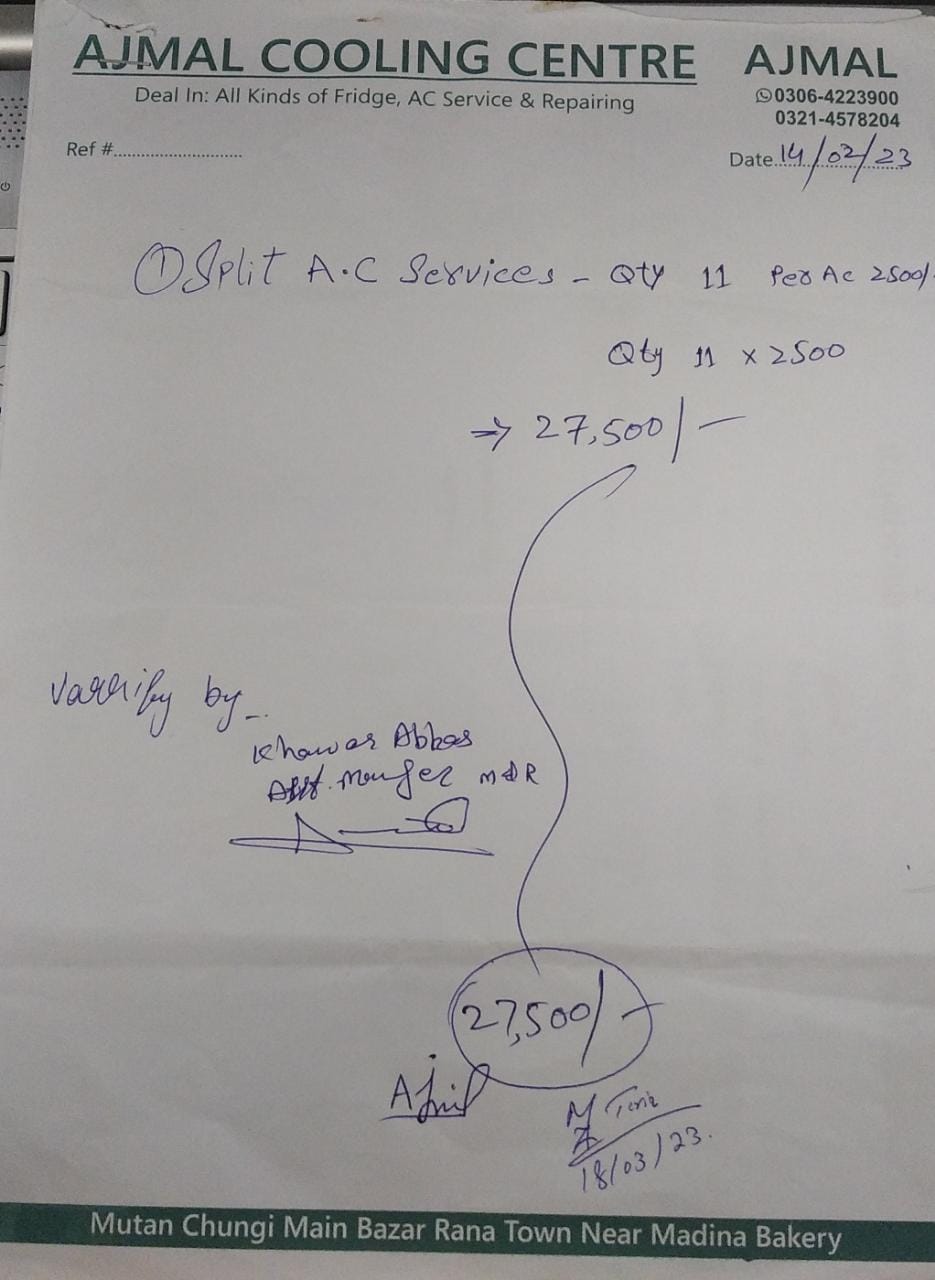 AJMAL COOLING CENTRE
AJMAL
Deal In: All Kinds of Fridge, AC Service & Repairing
0306-4223900
0321-4578204
Ref #...........................
Date 14/02/23
① Split A.C Services - Qty 11 Per Ac 2500/-
Qty 11 x 2500
⇒ 27,500/-
Varrify by
Khawar Abbas
Asst. Manger M&R
27,500/-
M Tariq
18/03/23.
Mutan Chungi Main Bazar Rana Town Near Madina Bakery